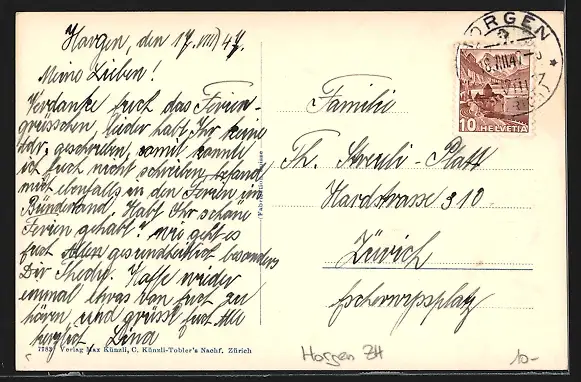 Horgen, den 17. VIII 47.
Meine Lieben!
Verdanke Euch das Ferien-
grüsschen, leider habt Ihr keine
Adr. geschrieben, somit konnte
ich Euch nicht schreiben, befande
mich ebenfalls in den Ferien im
Bündnerland. Habt Ihr schöne
Ferien gehabt? Wie geht es
Euch Allen gesundheitlich besonders
Dir Thedy. Hoffe wieder
einmal etwas von Euch zu
hören, und grüsst Euch Alle
herzlich, Lina
7783 Verlag Max Künzli, C. Künzli-Tobler's Nachf. Zürich
HORGEN
18.VIII.47
10 HELVETIA
Familie
Th. Streuli-Platt
Hardstrasse 310
Zürich
Escherwyssplatz
Horgen ZH
10-